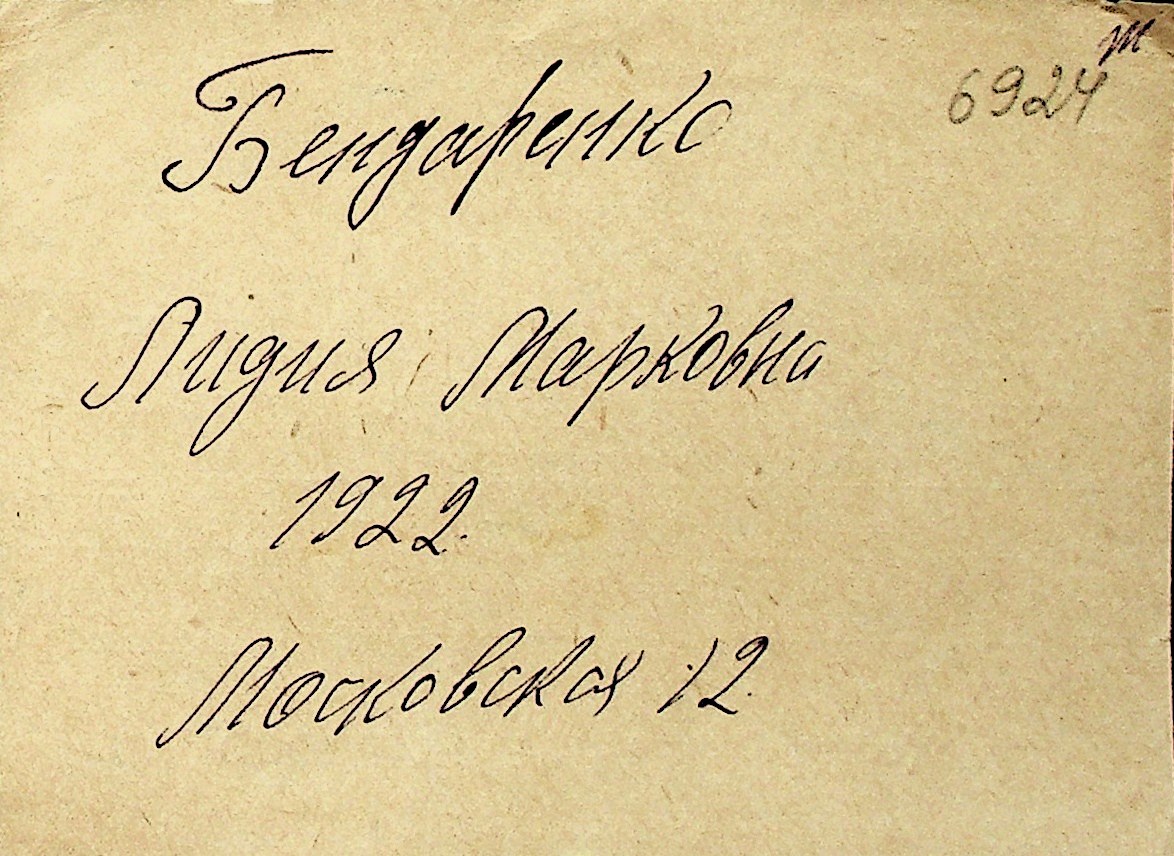 т
6924
Бендаренко
Лидия Марковна
1922.
Московская 12.